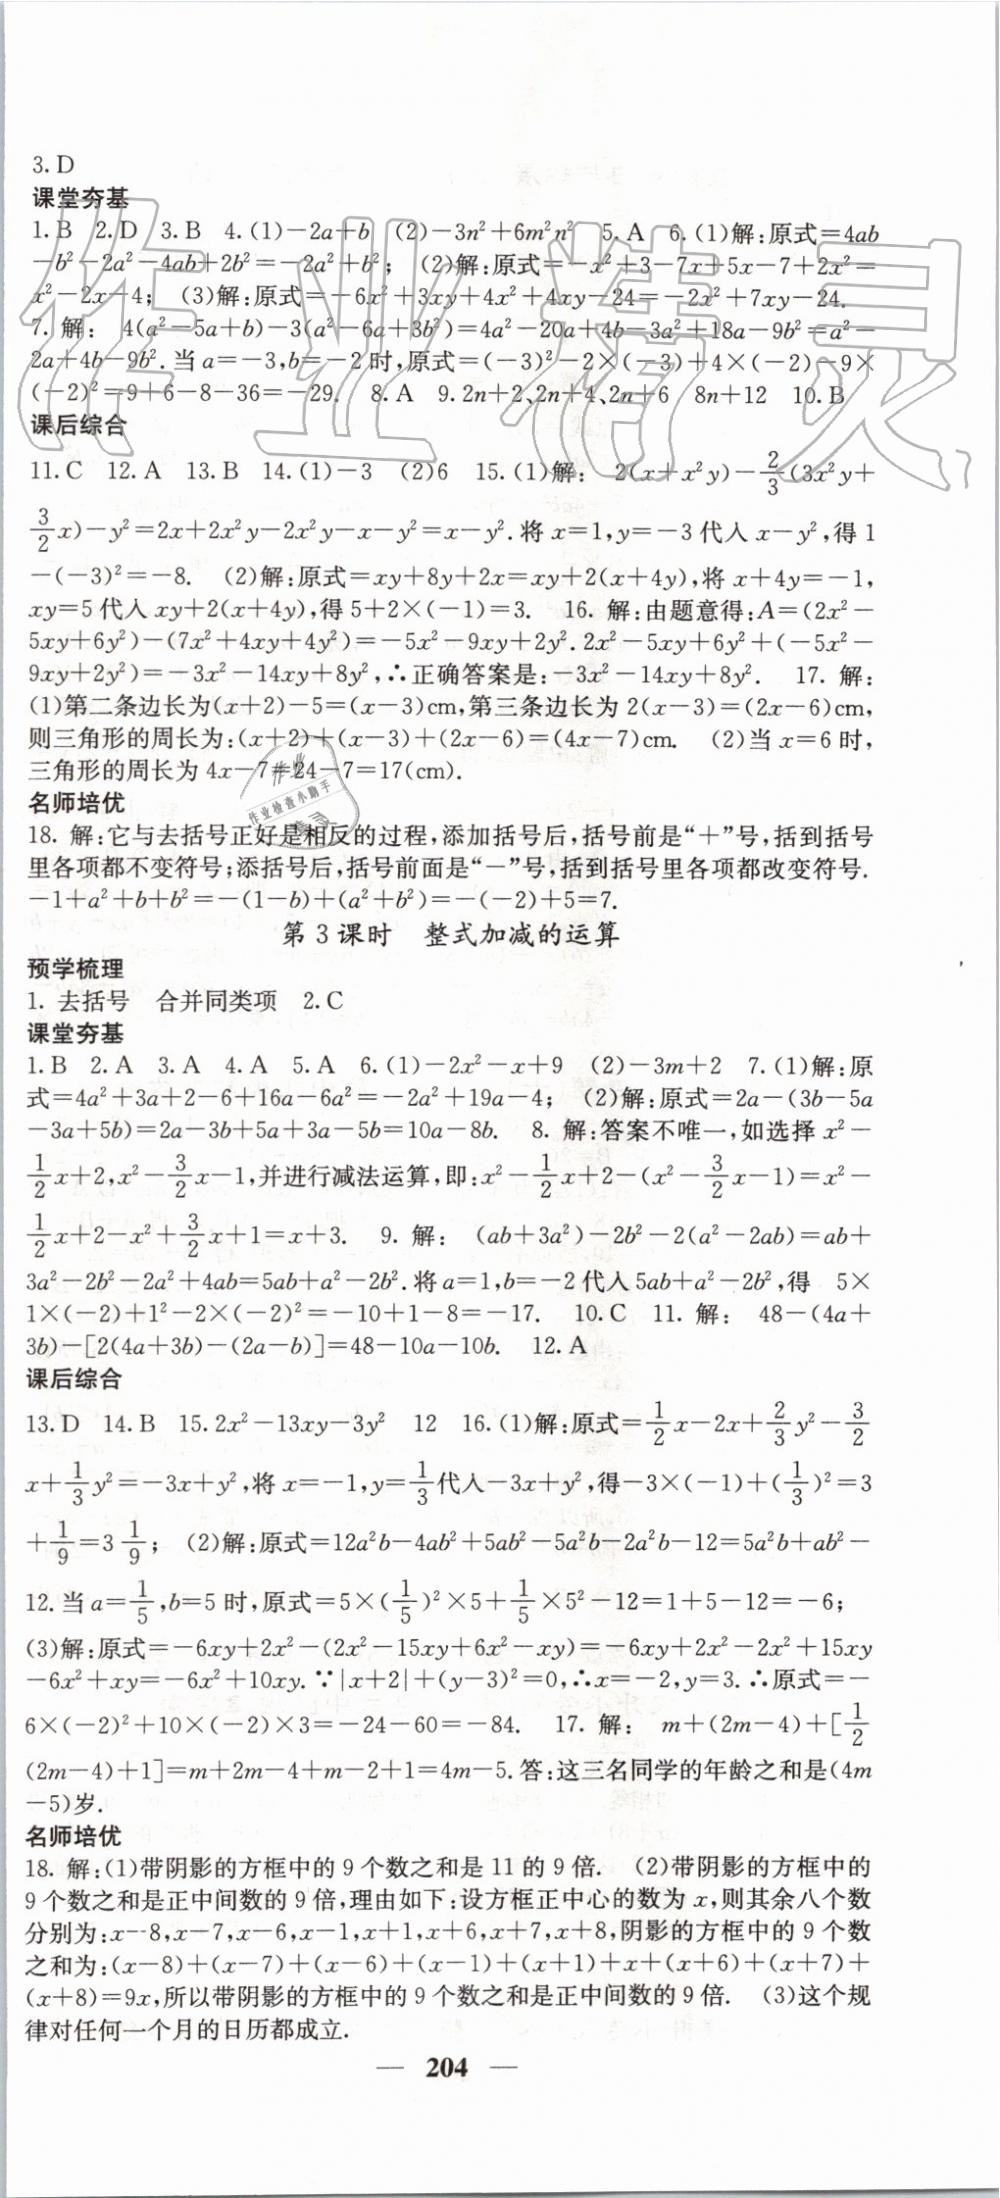 3. D
课堂夯基
1. B 2. D 3. B 4. (1)－2a＋b (2)－3n²＋6m²n² 5. A 6. (1)解:原式＝4ab
－b²－2a²－4ab＋2b²＝－2a²＋b²; (2)解:原式＝－x²＋3－7x＋5x－7＋2x²＝
x²－2x－4; (3)解:原式＝－6x²＋3xy＋4x²＋4xy－24＝－2x²＋7xy－24.
7. 解: 4(a²－5a＋b)－3(a²－6a＋3b²)＝4a²－20a＋4b－3a²＋18a－9b²＝a²－
2a＋4b－9b². 当 a＝－3,b＝－2 时,原式＝(－3)²－2×(－3)＋4×(－2)－9×
(－2)²＝9＋6－8－36＝－29. 8. A 9. 2n＋2、2n＋4、2n＋6 8n＋12 10. B
课后综合
11. C 12. A 13. B 14. (1)－3 (2)6 15. (1)解: 2(x＋x²y)－2/3(3x²y＋
3/2x)－y²＝2x＋2x²y－2x²y－x－y²＝x－y². 将 x＝1,y＝－3 代入 x－y²,得 1
－(－3)²＝－8. (2)解:原式＝xy＋8y＋2x＝xy＋2(x＋4y),将 x＋4y＝－1,
xy＝5 代入 xy＋2(x＋4y),得 5＋2×(－1)＝3. 16. 解:由题意得:A＝(2x²－
5xy＋6y²)－(7x²＋4xy＋4y²)＝－5x²－9xy＋2y². 2x²－5xy＋6y²＋(－5x²－
9xy＋2y²)＝－3x²－14xy＋8y²,∴正确答案是:－3x²－14xy＋8y². 17. 解:
(1)第二条边长为(x＋2)－5＝(x－3)cm,第三条边长为 2(x－3)＝(2x－6)cm,
则三角形的周长为:(x＋2)＋(x－3)＋(2x－6)＝(4x－7)cm. (2)当 x＝6 时,
三角形的周长为 4x－7＝24－7＝17(cm).
名师培优
18. 解:它与去括号正好是相反的过程,添加括号后,括号前是“＋”号,括到括号
里各项都不变符号;添括号后,括号前面是“－”号,括到括号里各项都改变符号.
－1＋a²＋b＋b²＝－(1－b)＋(a²＋b²)＝－(－2)＋5＝7.
第 3 课时 整式加减的运算
预学梳理
1. 去括号 合并同类项 2. C
课堂夯基
1. B 2. A 3. A 4. A 5. A 6. (1)－2x²－x＋9 (2)－3m＋2 7. (1)解:原
式＝4a²＋3a＋2－6＋16a－6a²＝－2a²＋19a－4; (2)解:原式＝2a－(3b－5a
－3a＋5b)＝2a－3b＋5a＋3a－5b＝10a－8b. 8. 解:答案不唯一,如选择 x²－
1/2x＋2,x²－3/2x－1,并进行减法运算,即:x²－1/2x＋2－(x²－3/2x－1)＝x²－
1/2x＋2－x²＋3/2x＋1＝x＋3. 9. 解: (ab＋3a²)－2b²－2(a²－2ab)＝ab＋
3a²－2b²－2a²＋4ab＝5ab＋a²－2b². 将 a＝1,b＝－2 代入 5ab＋a²－2b²,得 5×
1×(－2)＋1²－2×(－2)²＝－10＋1－8＝－17. 10. C 11. 解: 48－(4a＋
3b)－[2(4a＋3b)－(2a－b)]＝48－10a－10b. 12. A
课后综合
13. D 14. B 15. 2x²－13xy－3y² 12 16. (1)解:原式＝1/2x－2x＋2/3y²－3/2
x＋1/3y²＝－3x＋y²,将 x＝－1,y＝1/3代入－3x＋y²,得－3×(－1)＋(1/3)²＝3
＋1/9＝3 1/9; (2)解:原式＝12a²b－4ab²＋5ab²－5a²b－2a²b－12＝5a²b＋ab²－
12. 当 a＝1/5,b＝5 时,原式＝5×(1/5)²×5＋1/5×5²－12＝1＋5－12＝－6;
(3)解:原式＝－6xy＋2x²－(2x²－15xy＋6x²－xy)＝－6xy＋2x²－2x²＋15xy
－6x²＋xy＝－6x²＋10xy. ∵|x＋2|＋(y－3)²＝0,∴x＝－2,y＝3. ∴原式＝－
6×(－2)²＋10×(－2)×3＝－24－60＝－84. 17. 解: m＋(2m－4)＋[1/2
(2m－4)＋1]＝m＋2m－4＋m－2＋1＝4m－5. 答:这三名同学的年龄之和是(4m
－5)岁.
名师培优
18. 解:(1)带阴影的方框中的 9 个数之和是 11 的 9 倍. (2)带阴影的方框中的
9 个数之和是正中间数的 9 倍,理由如下:设方框正中心的数为 x,则其余八个数
分别为:x－8,x－7,x－6,x－1,x＋1,x＋6,x＋7,x＋8,阴影的方框中的 9 个数
之和为:(x－8)＋(x－7)＋(x－6)＋(x－1)＋(x＋1)＋x＋(x＋6)＋(x＋7)＋
(x＋8)＝9x,所以带阴影的方框中的 9 个数之和是正中间数的 9 倍. (3)这个规
律对任何一个月的日历都成立.
— 204 —
作业精灵
作业检查小助手